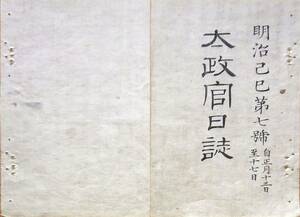 明治己巳第七號
自正月十三日
至十七日
太政官日誌